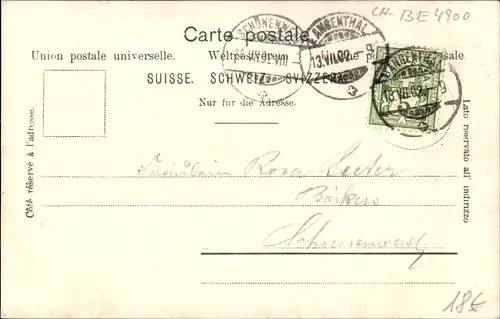 CH-BE 4900
Carte postale.
Union postale universelle. Weltpostverein.
SUISSE. SCHWEIZ. SVIZZERA.
Nur für die Adresse.
Côté réservé à l'adresse.
Lato riservato all' indirizzo
LANGENTHAL
13.VII.02.
LANGENTHAL
13.VII.02.-9
Fräulein Rosa
Bäckers
Schoenenwerd
18€